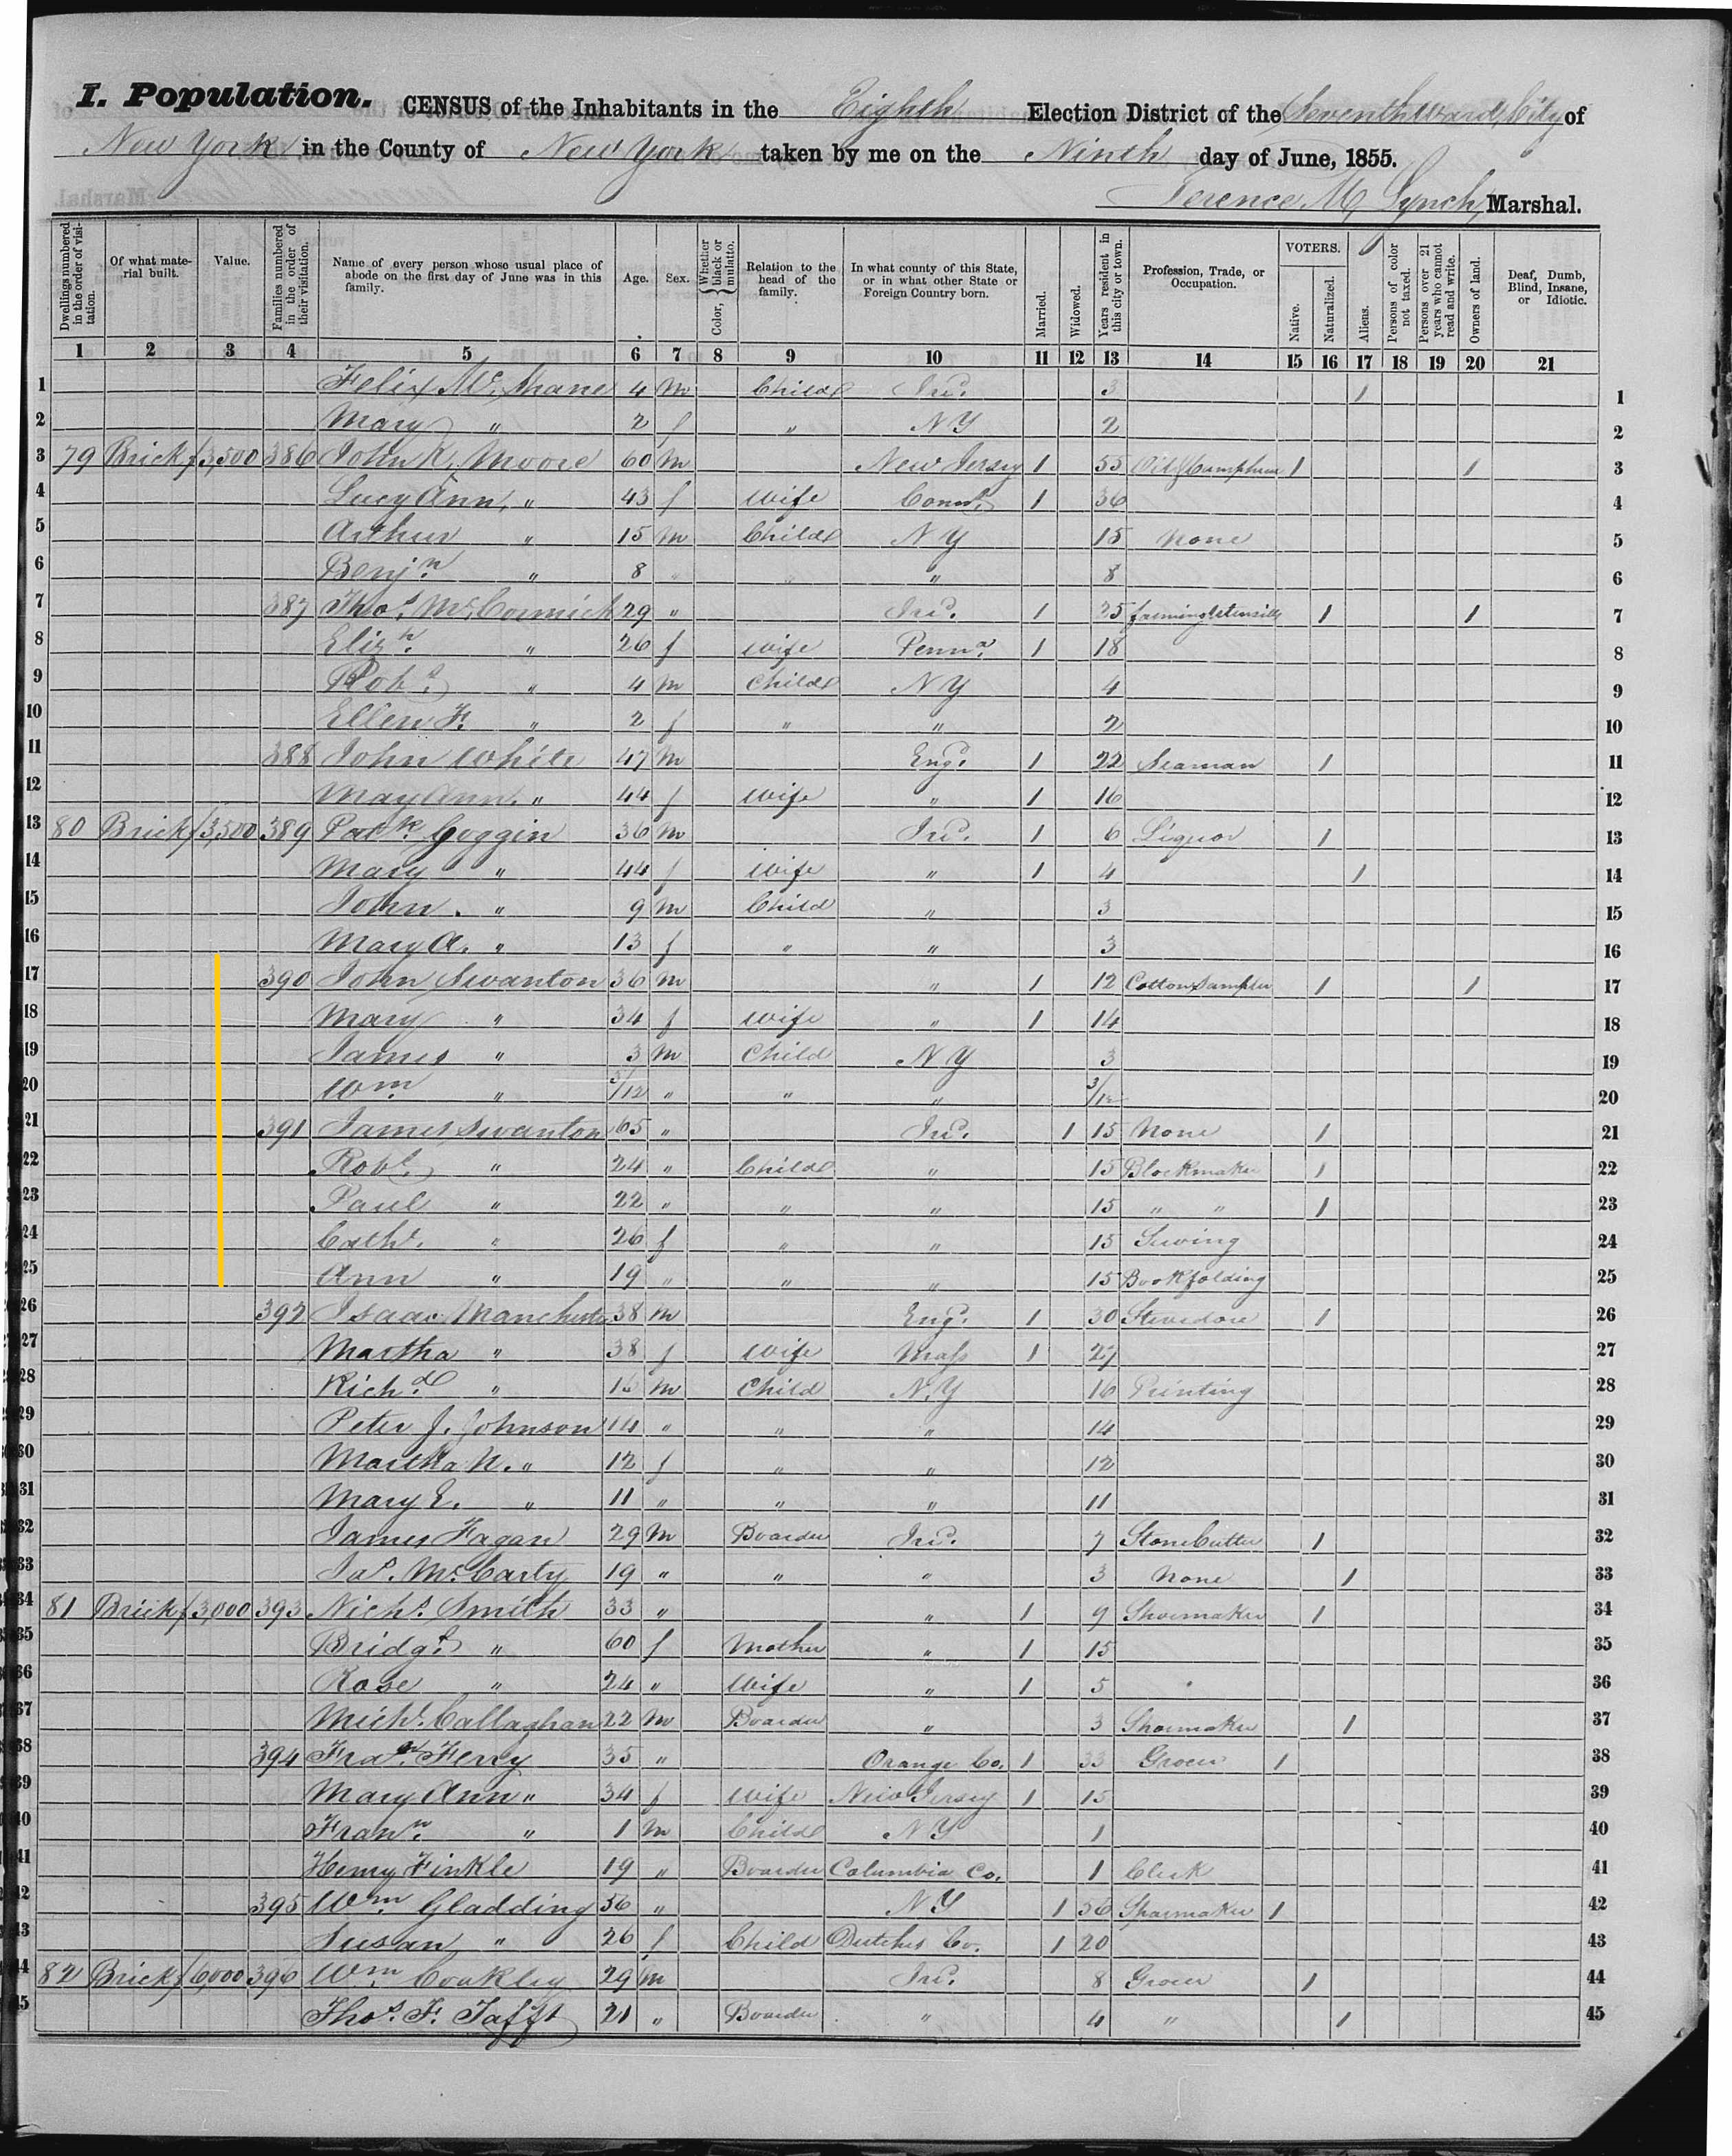 I. Population. CENSUS of the Inhabitants in the Eighth Election District of the Seventh Ward, City of
New York in the County of New York taken by me on the Ninth day of June, 1855.
Terence M Lynch, Marshal.
Dwellings numbered in the order of visitation. Of what material built. Value. Families numbered in the order of their visitation. Name of every person whose usual place of abode on the first day of June was in this family. Age. Sex. Color, Whether black or mulatto. Relation to the head of the family. In what county of this State, or in what other State or Foreign Country born. Married. Widowed. Years resident in this city or town. Profession, Trade, or Occupation. VOTERS. Native. Naturalized. Aliens. Persons of color not taxed. Persons over 21 years who cannot read and write. Owners of land. Deaf, Dumb, Blind, Insane, or Idiotic.
1 2 3 4 5 6 7 8 9 10 11 12 13 14 15 16 17 18 19 20 21
1 Felix McShane 4 m Child Ird. 3 1 1
2 Mary " 2 f " NY 2 2
3 79 Brick 3,500 386 John K. Moore 60 m New Jersey 1 55 Oil & Camphene 1 1 3
4 Lucy Ann, " 43 f wife Connt. 1 36 4
5 Arthur " 15 m Child NY 15 None 5
6 Benjn. " 8 " " " 8 6
7 387 Thos. McCormick 29 " Ird. 1 25 farming utensills 1 1 7
8 Elizh. " 26 f wife Penna. 1 18 8
9 Robt. " 4 m Child NY 4 9
10 Ellen F. " 2 f " " 2 10
11 388 John White 47 m Engd. 1 22 Seaman 1 11
12 May Ann. " 44 f wife " 1 16 12
13 80 Brick 3,500 389 Patk. Goggin 36 m Ird. 1 6 Liquor 1 13
14 Mary " 44 f wife " 1 4 1 14
15 John. " 9 m Child " 3 15
16 Mary A. " 13 f " " 3 16
17 390 John Swanton 36 m " 1 12 Cotton Sampler 1 1 17
18 Mary " 34 f wife " 1 14 18
19 James " 3 m Child NY 3 19
20 Wm " 3/12 " " " 3/12 20
21 391 James Swanton 65 " Ird. 1 15 None 1 21
22 Robt. " 24 " Child " 15 Blockmaker 1 22
23 Paul " 22 " " " 15 " " 1 23
24 Cathe. " 26 f " " 15 Sewing 24
25 Ann " 19 " " " 15 Bookfolding 25
26 392 Isaac Manchester 38 m Engd. 1 30 Stevedore 1 26
27 Martha " 38 f wife Mass 1 27 27
28 Richd " 16 m Child N.Y 16 Printing 28
29 Peter J. Johnson 14 " " " 14 29
30 Martha N. " 12 f " " 12 30
31 Mary E. " 11 " " " 11 31
32 James Fagan 29 m Boarder Ird. 7 Stone Cutter 1 32
33 Jas. McCarty 19 " " " 3 None 1 33
34 81 Brick 3,000 393 Nichs. Smith 33 " " 1 9 Shoemaker 1 34
35 Bridgt. " 60 f Mother " 1 15 35
36 Rose " 24 " Wife " 1 5 36
37 Michl. Callaghan 22 m Boarder " 3 Shoemaker 1 37
38 394 Ferry 35 " Orange Co. 1 33 Grocer 1 38
39 Mary Ann " 34 f wife New Jersey 1 15 39
40 " 1 m Child NY 1 40
41 Henry Finkle 19 " Boarder Columbia Co. 1 Clerk 41
42 395 Wm Gladding 56 " NY 1 56 Shoemaker 1 42
43 Susan " 26 f Child Dutches Co. 1 20 43
44 82 Brick 6,000 396 Wm. Coakley 29 m Ird. 8 Grocer 1 44
45 Thos. F. Tafft 21 " Boarder " 4 " 1 45